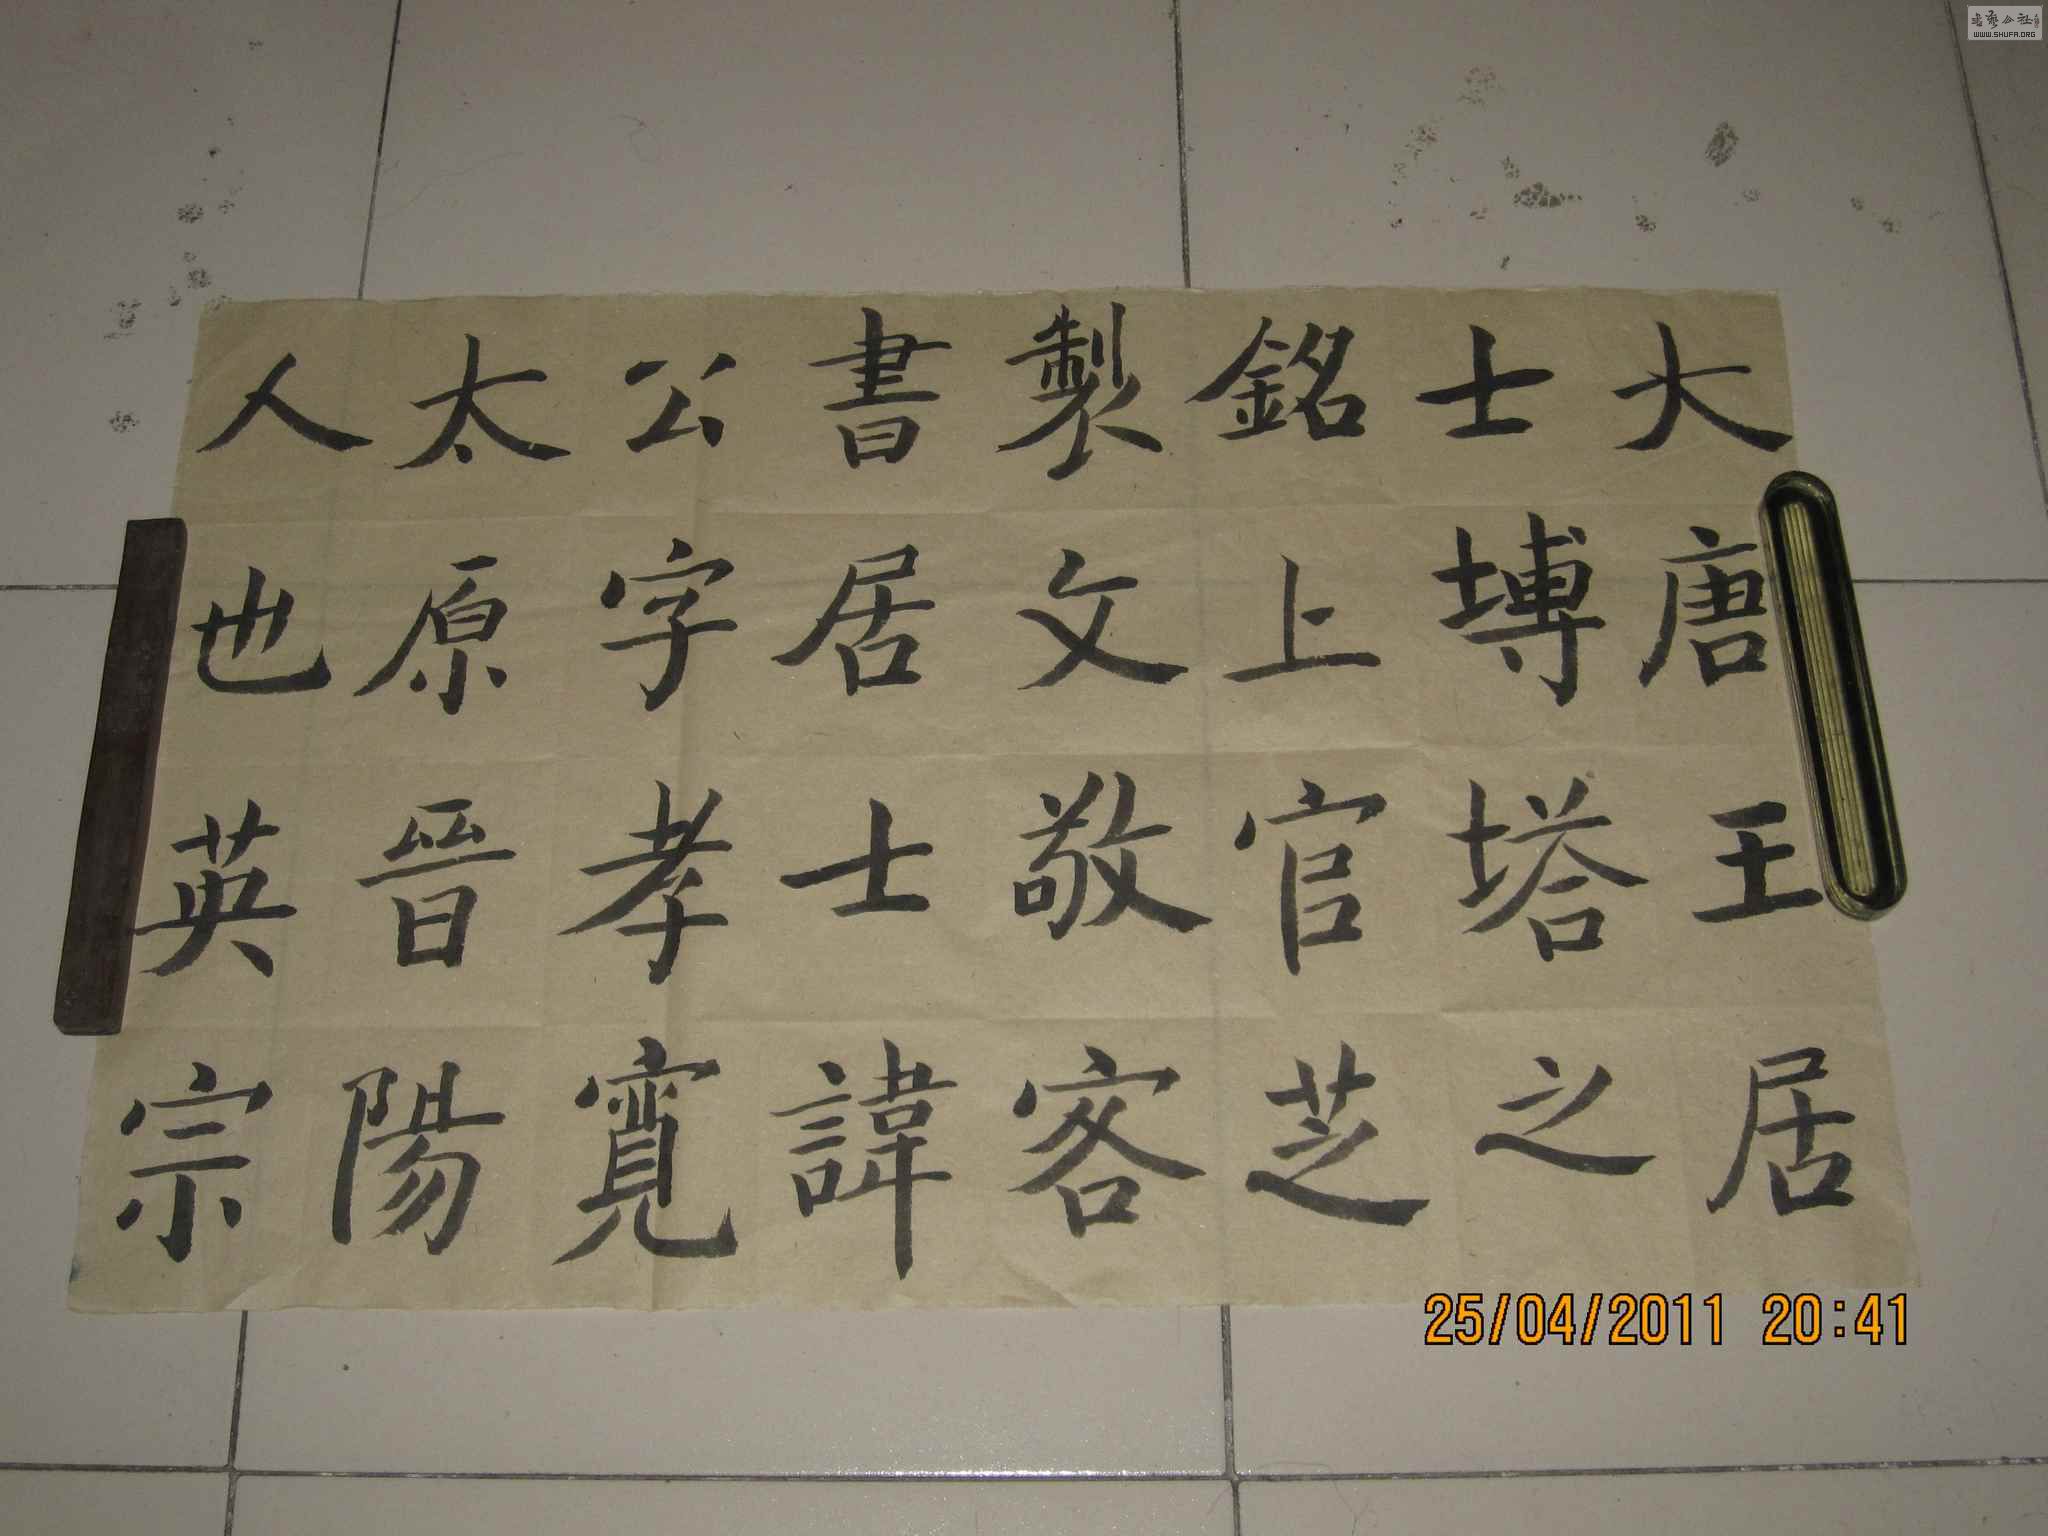 大唐王居
士塼塔之
銘上官芝
製文敬客
書居士諱
公字孝寬
太原晉陽
人也英宗
25/04/2011 20:41
书艺公社
WWW.SHUFA.ORG